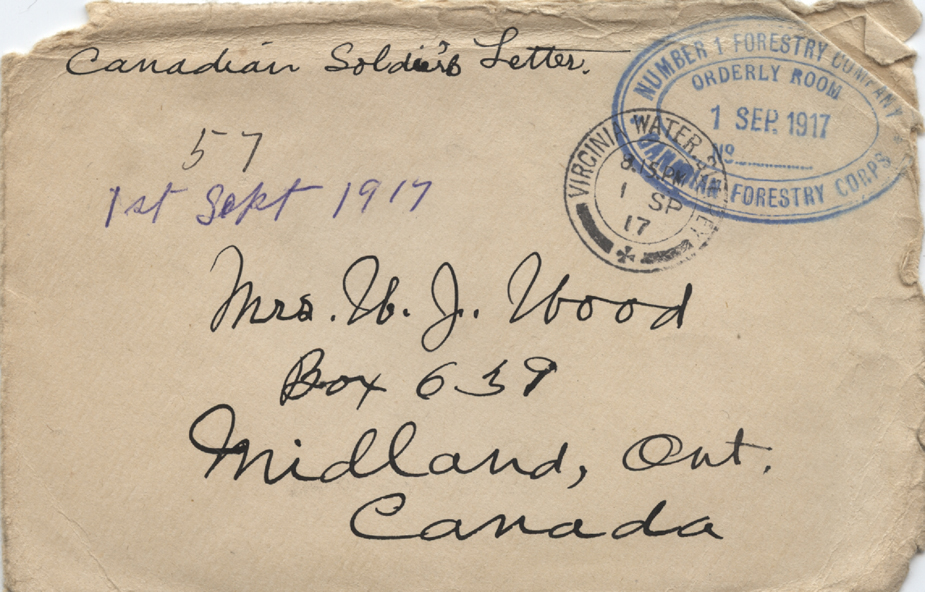 Canadian Soldier's Letter.
NUMBER 1 FORESTRY COMPANY
ORDERLY ROOM
1 SEP. 1917
No
CANADIAN FORESTRY CORPS
VIRGINIA WATER
8.15 PM
1 SP
17
57
1st Sept 1917
Mrs. W. J. Wood
Box 639
Midland, Ont.
Canada